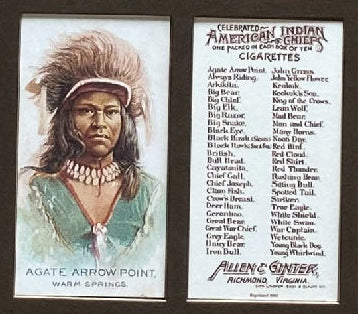 AGATE ARROW POINT,
WARM SPRINGS.
CELEBRATED
AMERICAN INDIAN
CHIEFS
ONE PACKED IN EACH BOX OF TEN
CIGARETTES
Agate Arrow Point. John Grass.
Always Riding. John Yellow Flower.
Arkikita. Keokuk.
Big Bear. Keokuk's Son.
Big Chief. King of the Crows.
Big Elk. Lean Wolf.
Big Razor. Mad Bear.
Big Snake. Man and Chief.
Black Eye. Many Horns.
Black Hawk (Sioux) Noon Day.
Black Hawk (Sac & Fox) Red Bird.
British. Red Cloud.
Bull Head. Red Shirt.
Cayatanita. Red Thunder.
Chief Gall. Rushing Bear.
Chief Joseph. Sitting Bull.
Clam Fish. Spotted Tail.
Crow's Breast. Striker.
Deer Ham. True Eagle.
Geronimo. White Shield.
Great Bear. White Swan.
Great War Chief. War Captain.
Grey Eagle. Wetcunie.
Hairy Bear. Young Black Dog.
Iron Bull. Young Whirlwind.
ALLEN & GINTER,
RICHMOND, VIRGINIA.